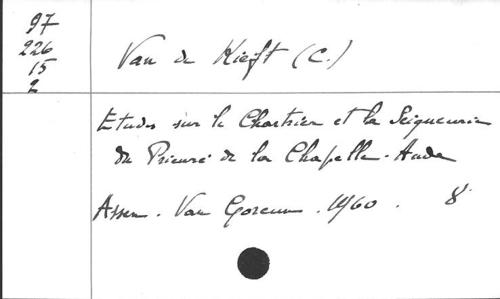 97
226
15
2
Van de Kieft (C.)
Etudes sur le Chartrier et la Seigneurie
du Prieuré de la Chapelle-Aude
Assen. Van Gorcum. 1960. 8°